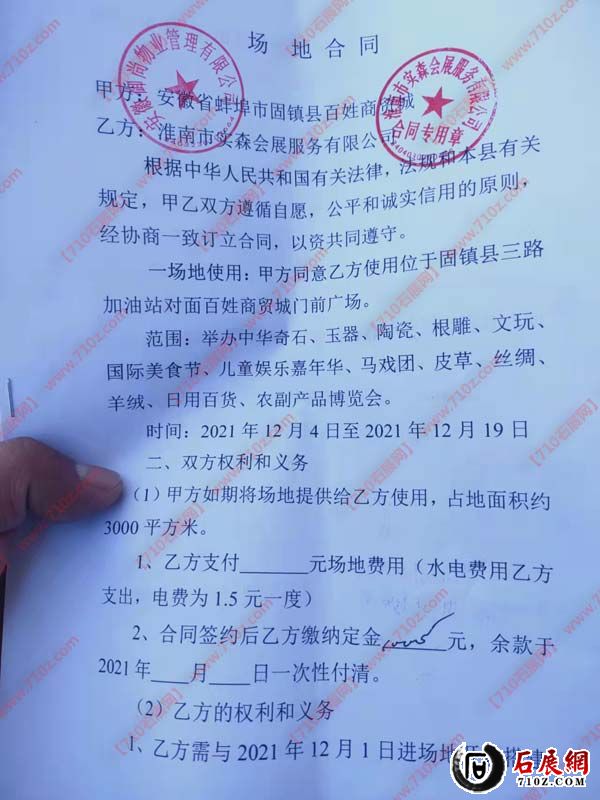 场地合同
甲方：安徽省蚌埠市固镇县百姓商贸城
乙方：淮南市实森会展服务有限公司
根据中华人民共和国有关法律，法规和本县有关
规定，甲乙双方遵循自愿，公平和诚实信用的原则，
经协商一致订立合同，以资共同遵守。
一场地使用：甲方同意乙方使用位于固镇县三路
加油站对面百姓商贸城门前广场。
范围：举办中华奇石、玉器、陶瓷、根雕、文玩、
国际美食节、儿童娱乐嘉年华、马戏团、皮草、丝绸、
羊绒、日用百货、农副产品博览会。
时间：2021年12月4日至2021年12月19日
二、双方权利和义务
（1）甲方如期将场地提供给乙方使用，占地面积约
3000平方米。
1、乙方支付______元场地费用（水电费用乙方
支出，电费为1.5元一度）
2、合同签约后乙方缴纳定金 元，余款于
2021年___月___日一次性付清。
（2）乙方的权利和义务
1、乙方需与2021年12月1日进场地
物业管理有限公司
实森会展服务有限公司
合同专用章
【710石展网】
www.710z.com
石展網
710Z.COM